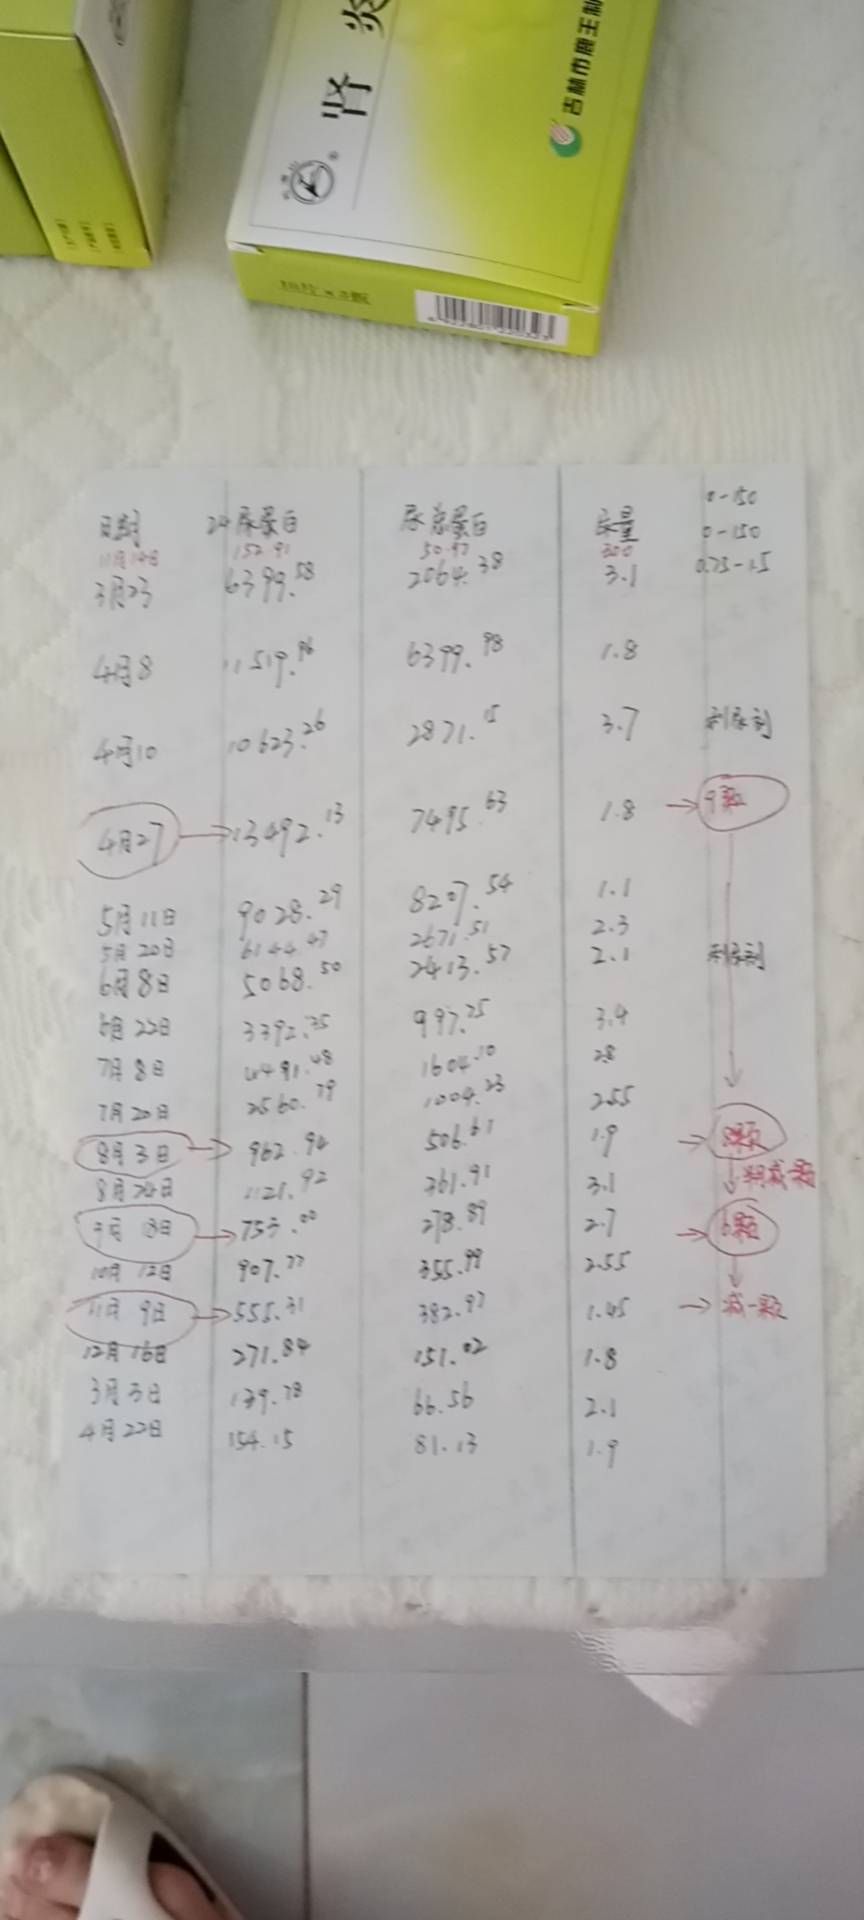 肾炎
吉林市鹿王制
18片×3板
0-150
日期 24尿蛋白 尿总蛋白 尿量 0-150
11月14日 152.91 50.97 300 0.75-1.5
3月23 6399.58 2064.38 3.1
4月8 11519.96 6399.98 1.8
4月10 10623.26 2871.15 3.7 利尿剂
4月27 → 13492.13 7495.63 1.8 → 9颗
5月11日 9028.29 8207.54 1.1
5月20日 6144.47 2671.51 2.3
6月8日 5068.50 2413.57 2.1 利尿剂
6月22日 3392.35 997.75 3.4
7月8日 4491.48 1604.10 2.8
7月20日 2560.79 1004.23 2.55
8月3日 → 962.94 506.81 1.9 → 8颗
8月24日 1121.92 361.91 3.1 减一颗
9月18日 → 753.00 278.89 2.7 → 6颗
10月12日 907.77 355.99 2.55
11月9日 → 555.31 382.97 1.45 → 减一颗
12月16日 271.84 151.02 1.8
3月3日 139.78 66.56 2.1
4月22日 154.15 81.13 1.9